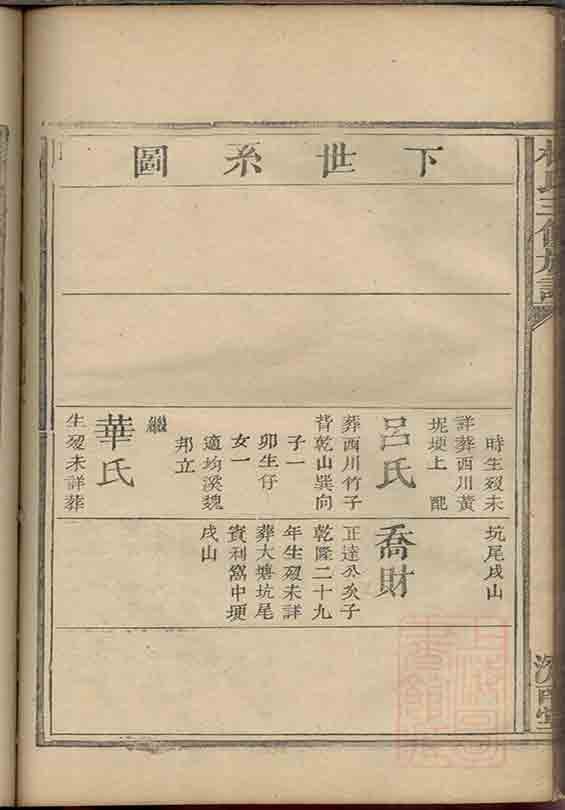 下世系圖
時生歿未
詳葬西川黃
坭埂上 配
呂氏
葬西川竹子
背乾山巽向
子一
卯生仔
女一
適均溪魏
邦立
繼
華氏
生歿未詳葬
坑尾戌山
喬財
正達公次子
乾隆二十九
年生歿未詳
葬大塘坑尾
賓利窩中埂
戌山
氏三修族譜
百堂